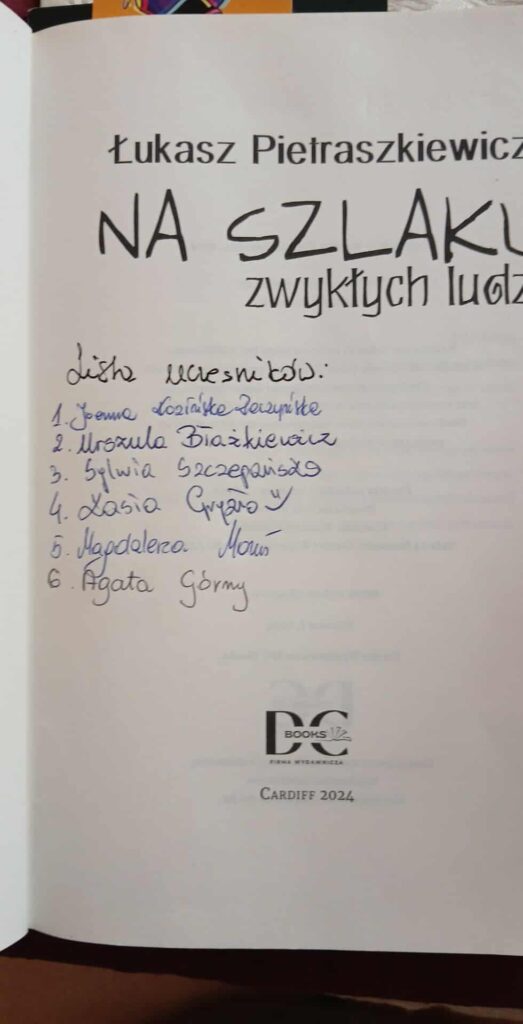 Łukasz Pietraszkiewicz
NA SZLAKU
zwykłych ludz
Lista uczesników:
1. Joanna Łozińska-Zaczyńska
2. Urszula Błażkiewicz
3. Sylwia Szczepańska
4. Kasia Gryzło
5. Magdalena
6. Agata Górny
DC
BOOKS
FIRMA WYDAWNICZA
CARDIFF 2024